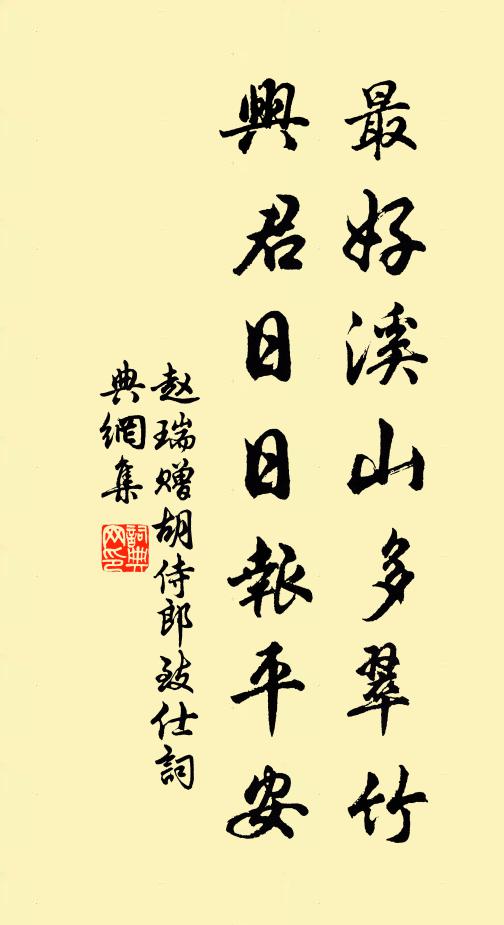 最好溪山多翠竹
興君日日報平安
赵瑞赠胡侍郎致仕詞
典網集
詞典
网印